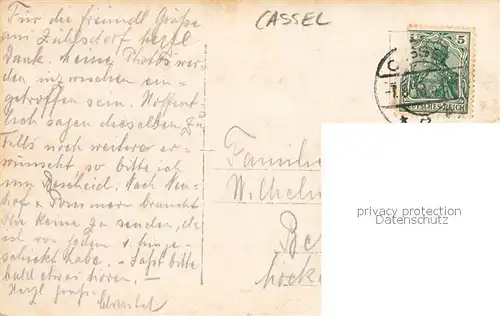 Für die freundl Grüße
aus Zühlsdorf herzl
Dank. Meine Photos wer-
den inzwischen ein-
getroffen sein. Hoffent-
lich sagen dieselben zu
Falls noch weitere er-
wünscht so bitte ich
um Bescheid. Nach Neu-
hof & Pommern braucht
Ihr keine zu senden, da
ich von jedem 1 hinge-
schickt habe. – Laßt bitte
bald etwas hören. –
Herzl Gruß
CASSEL
5
DEUTSCHES REICH
CASSEL
Familie
Wilhelm
privacy protection
Datenschutz